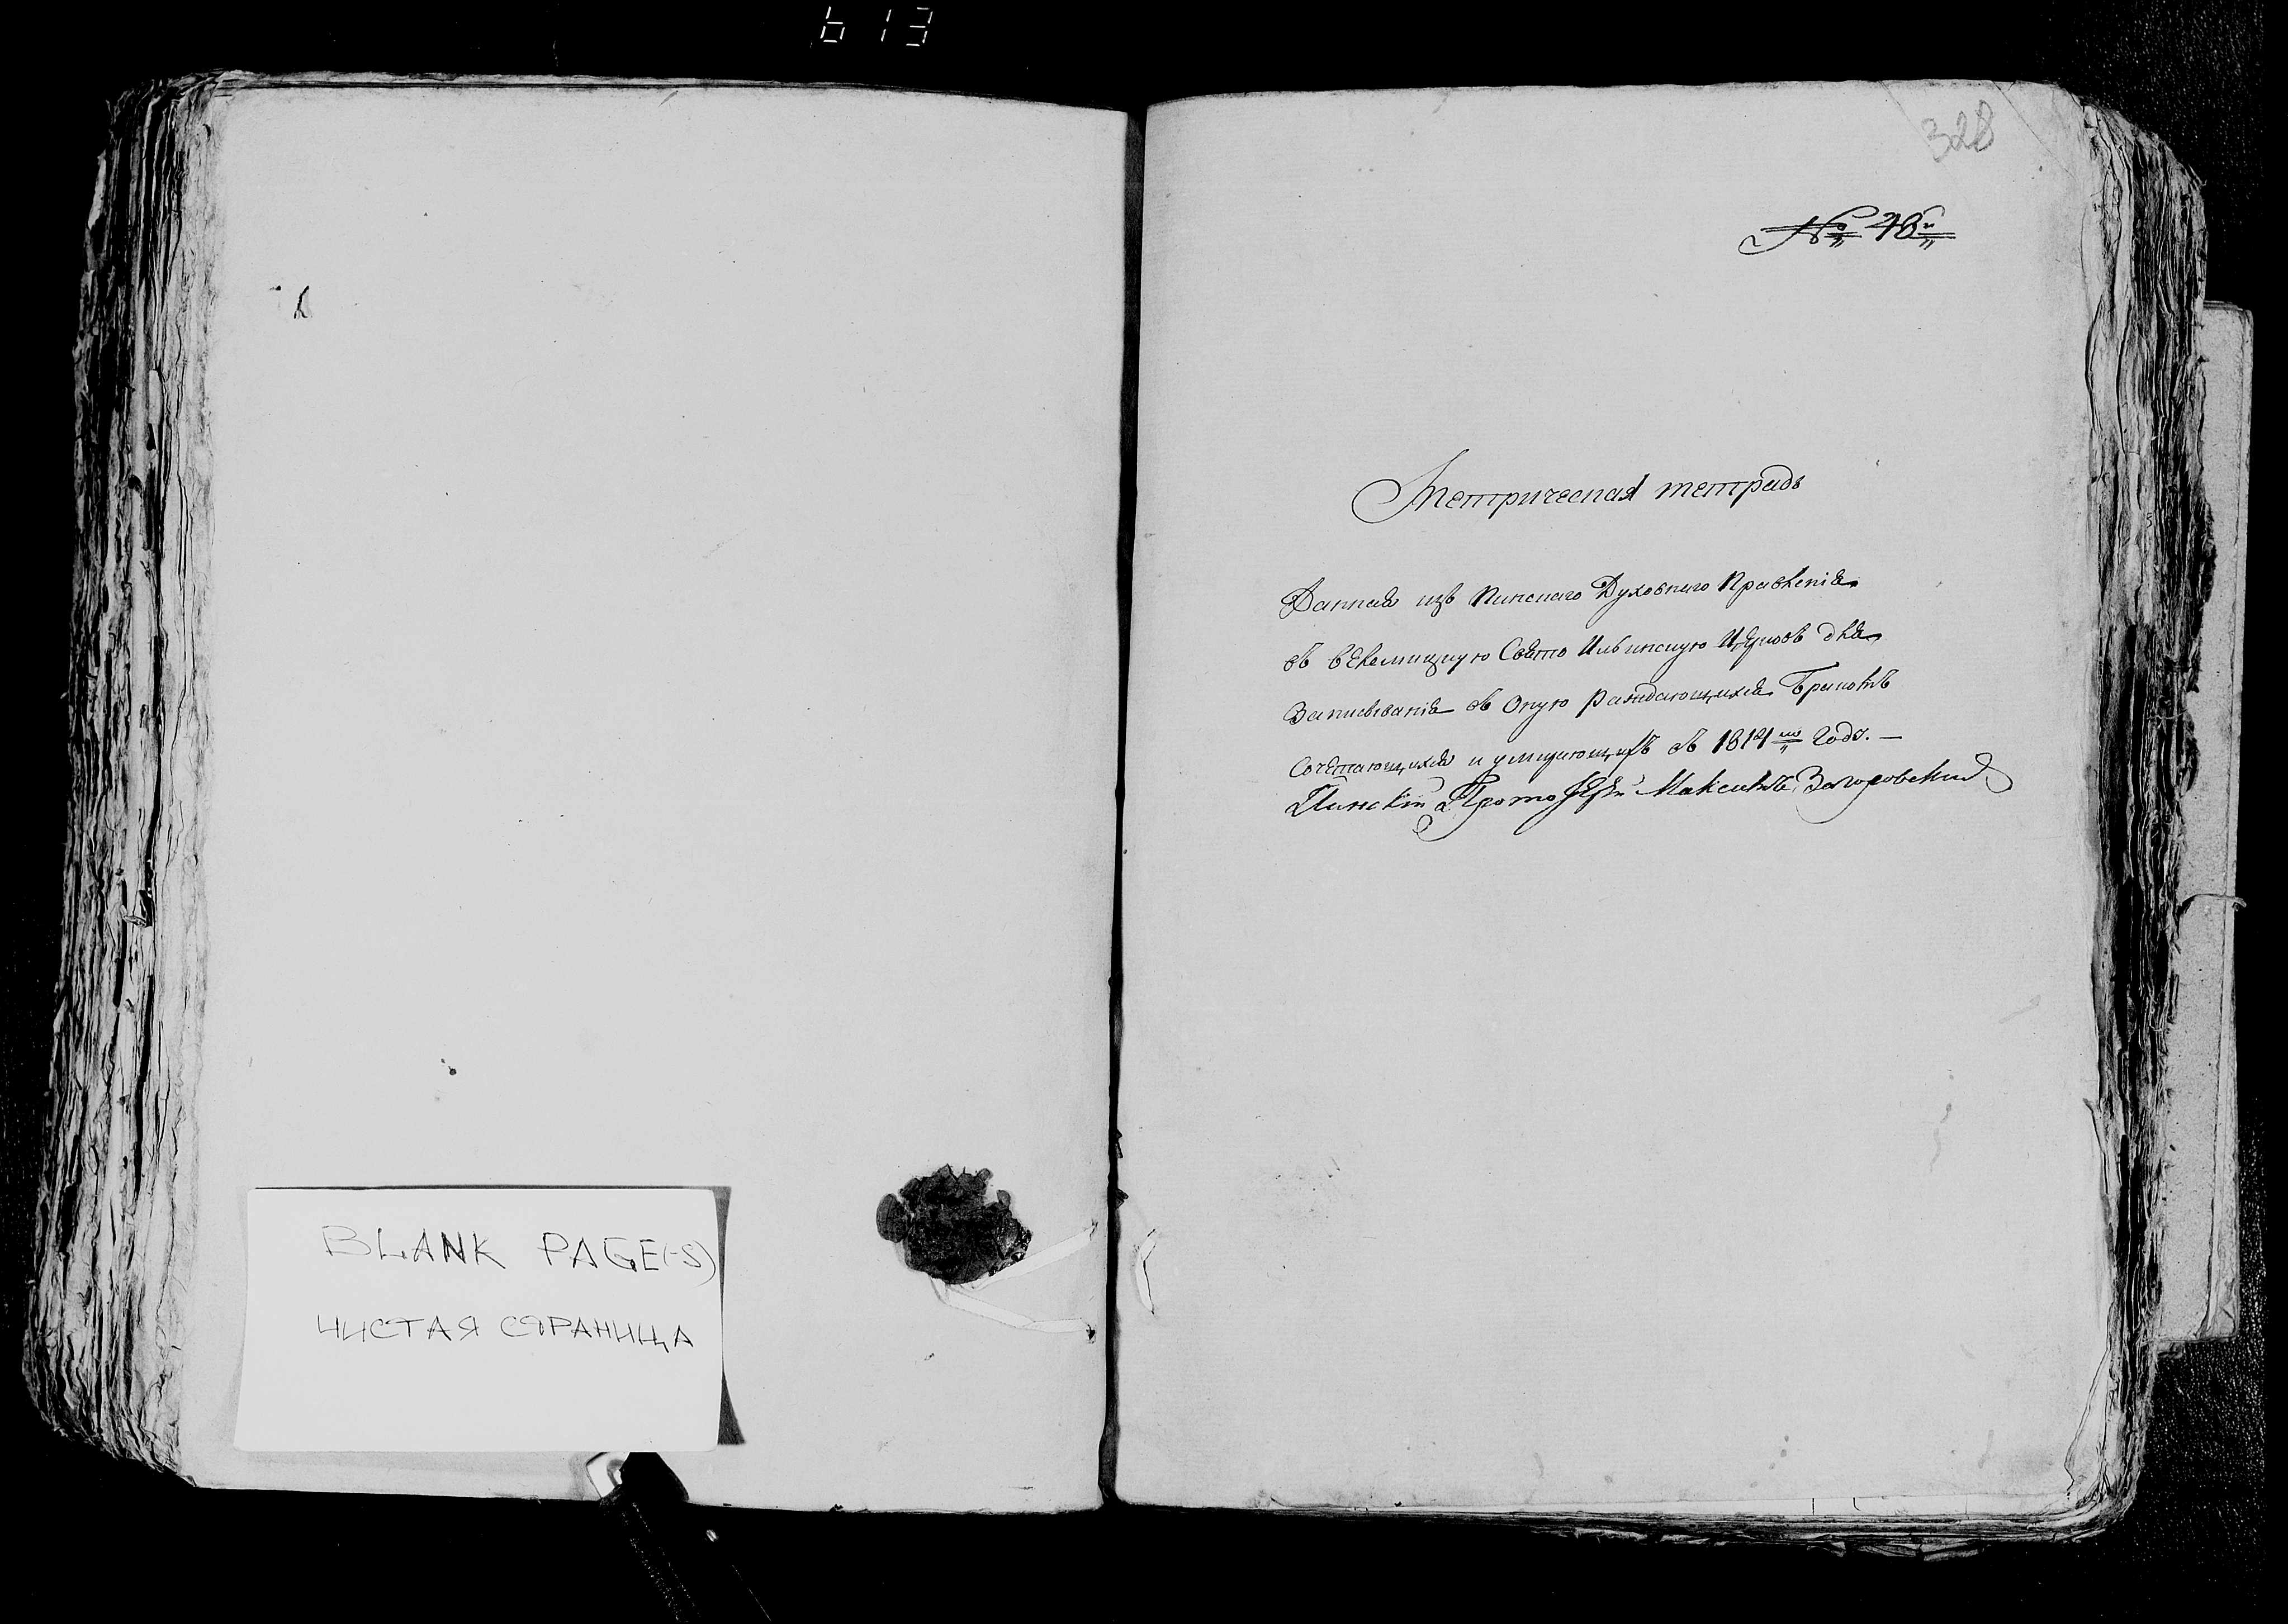 613
BLANK PAGE(-S)
ЧИСТАЯ СТРАНИЦА
328
№ 48й
Метрическая тетрадь
Данная изъ Пинскаго Духовнаго Правленія
въ Свято Ильинскую Церковь для
Записыванія въ Оную Раждающихся Бракомъ
Сочетающихся и умирающихъ въ 1814мъ Годѣ. —
Пинскій Протоіерей Максимъ Загоровский